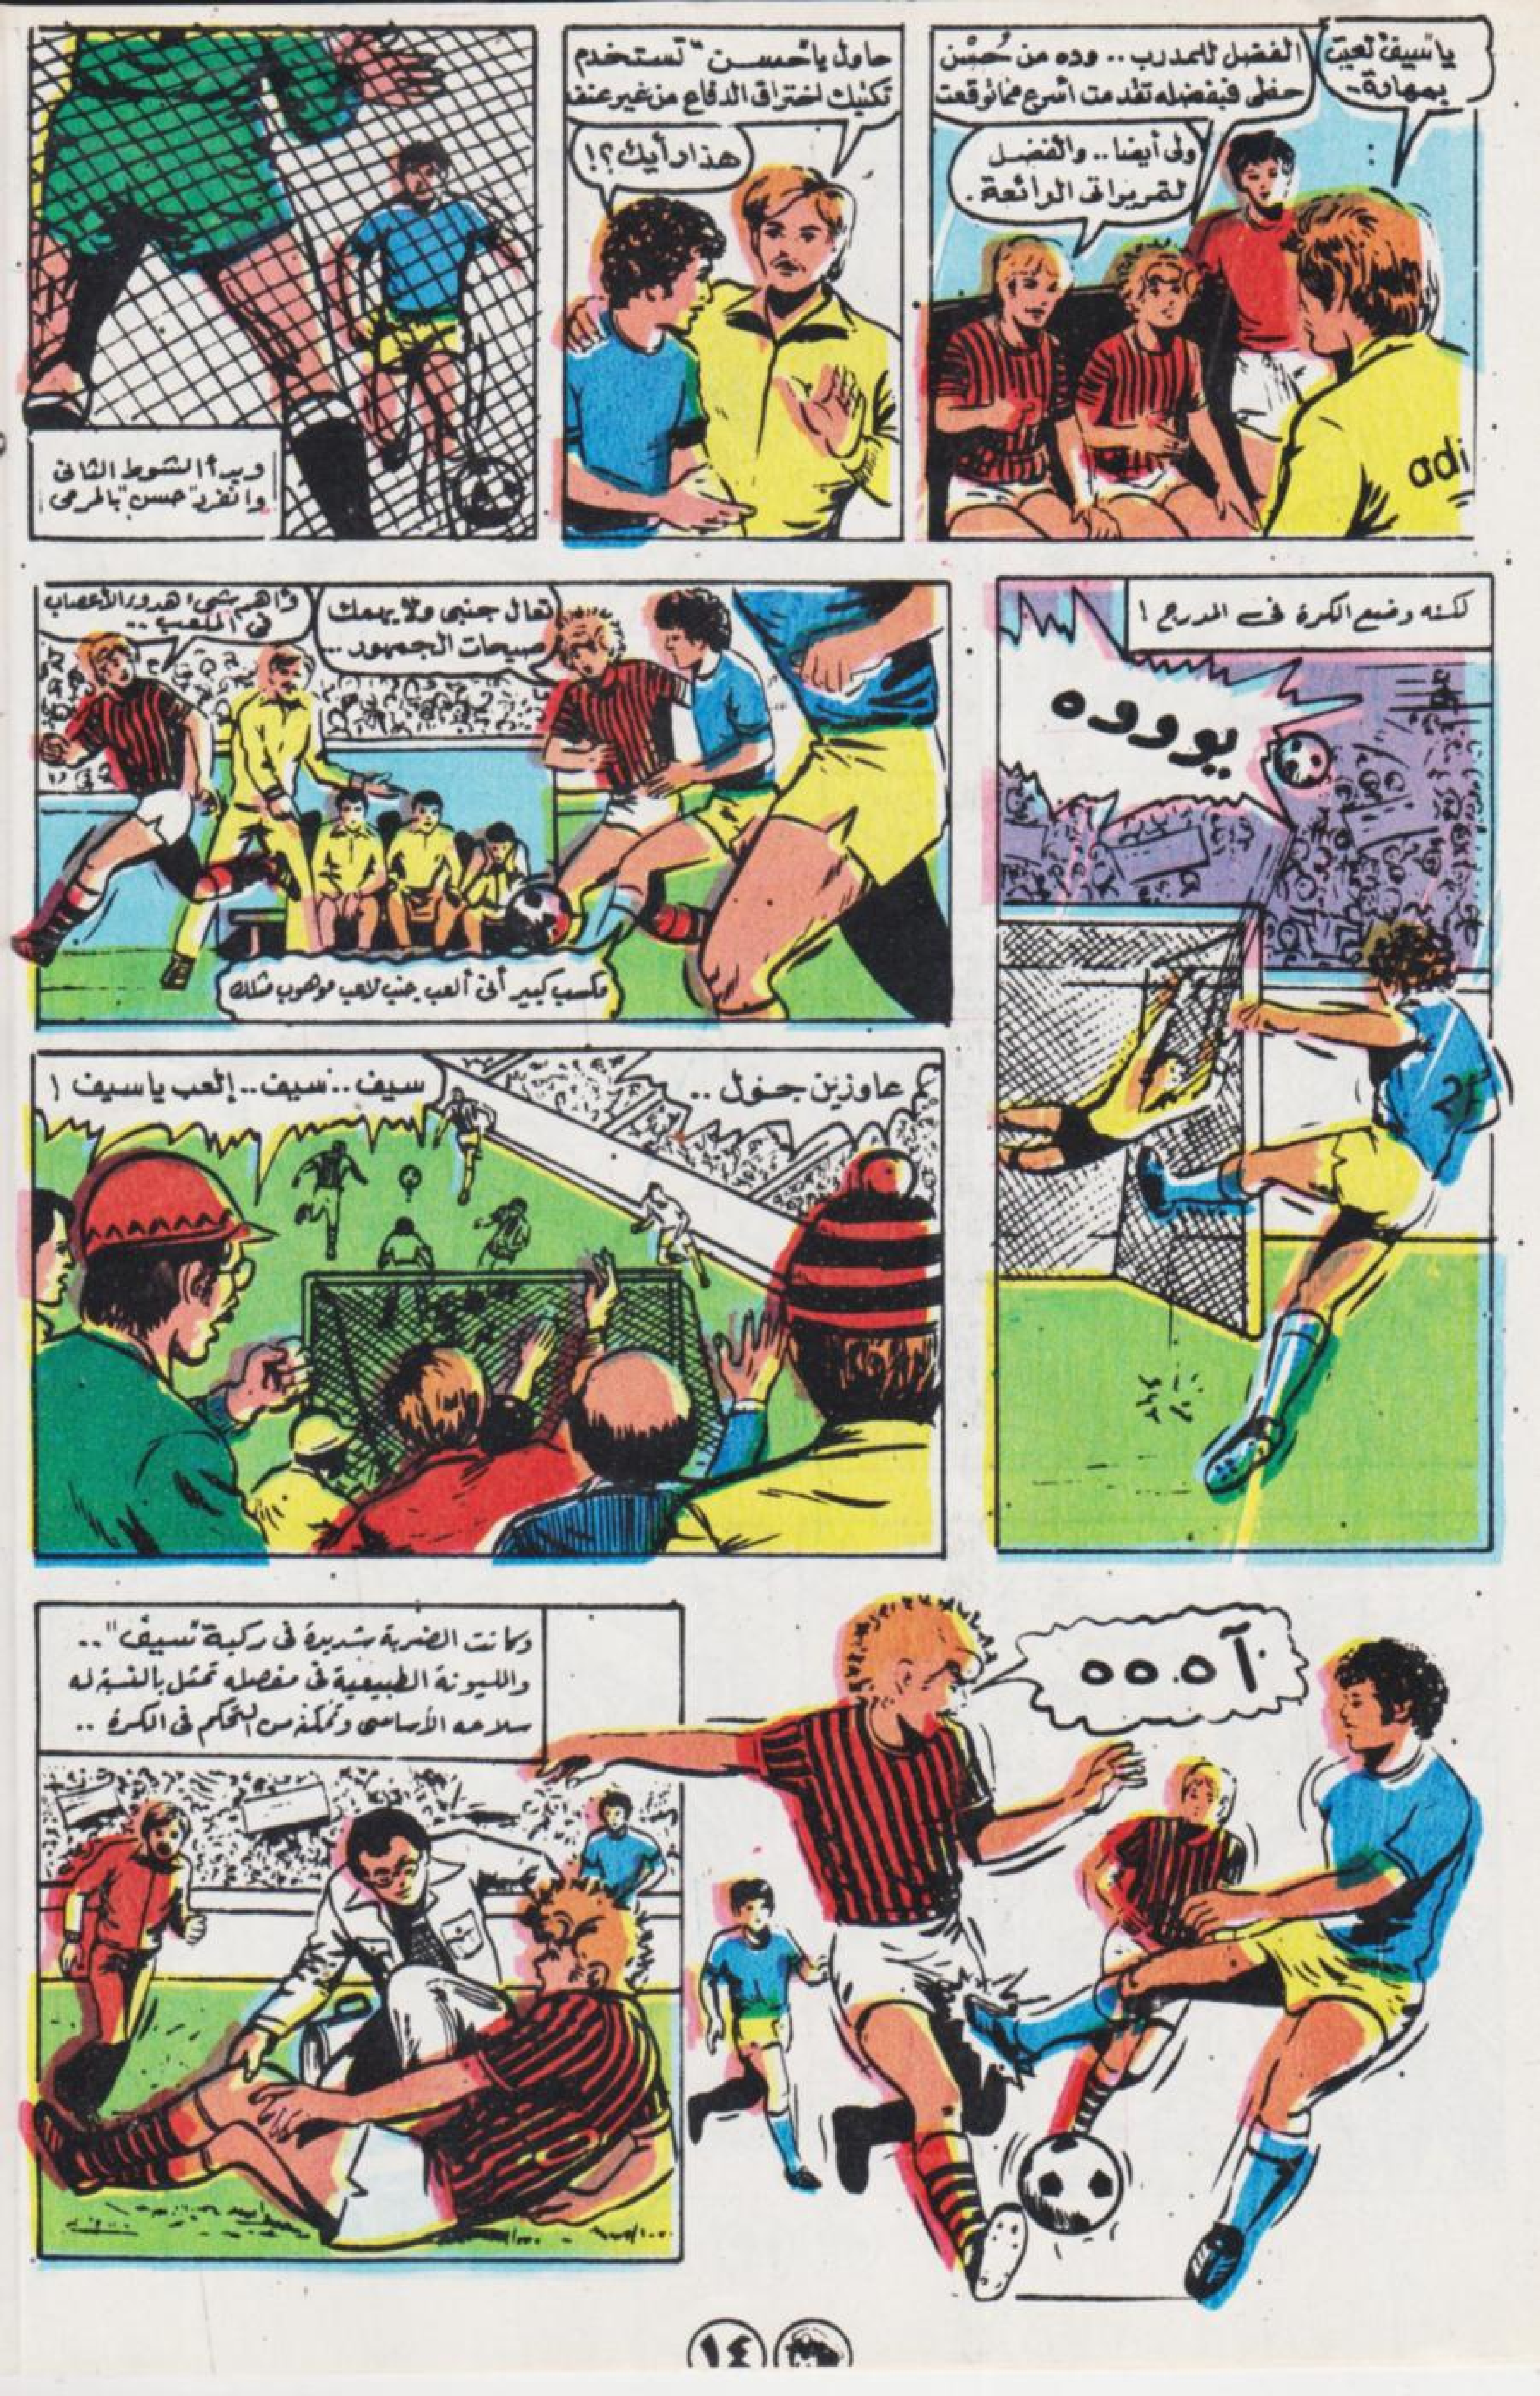 يا "سيف" لعبت
بمهارة..
الفضل للمدرب.. وده من حُسْن
حظى فبفضله تقدمت أسرع مما توقعت
ولى أيضا.. والفضل
لتمريراتى الرائعة.
adi
حاول يا "حسن" تستخدم
تكنيك اختراق الدفاع من غير عنف
هذا رأيك؟!
وبدأ الشوط الثانى
وانفرد "حسن" بالمرمى
لكنه وضع الكرة فى المدرج !
يوووه
2
تعال جنبى ولا يهمك
صيحات الجمهور ...
وأهم شىء هدوء الأعصاب
فى الملعب ..
مكسب كبير أنى ألعب جنب لاعب موهوب مثلك
عاوزين جول ..
سيف .. سيف .. إلعب يا سيف !
آه.ه ه
وكانت الضربة شديدة فى ركبة "سيف" ..
والليونة الطبيعية فى مفصله تمثل بالنسبة له
سلاحه الأساسى وتمكنه من التحكم فى الكرة ..
١٤